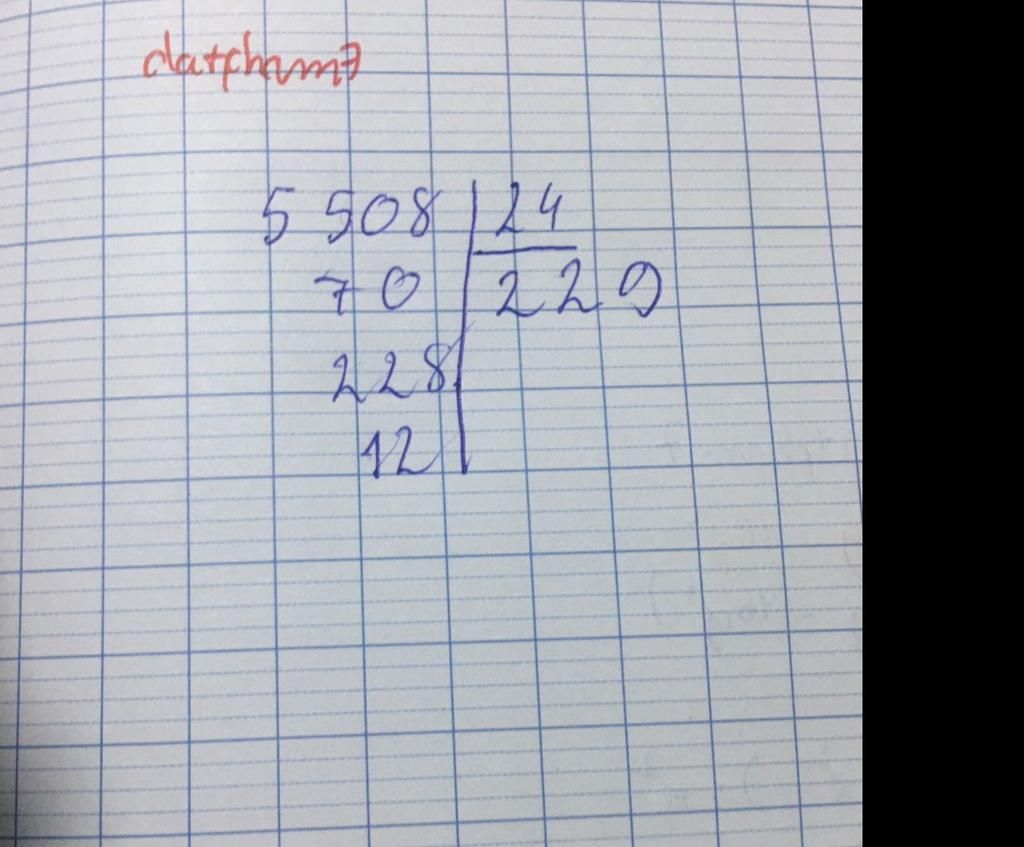 datpham7
5 508 24
70 229
228
12